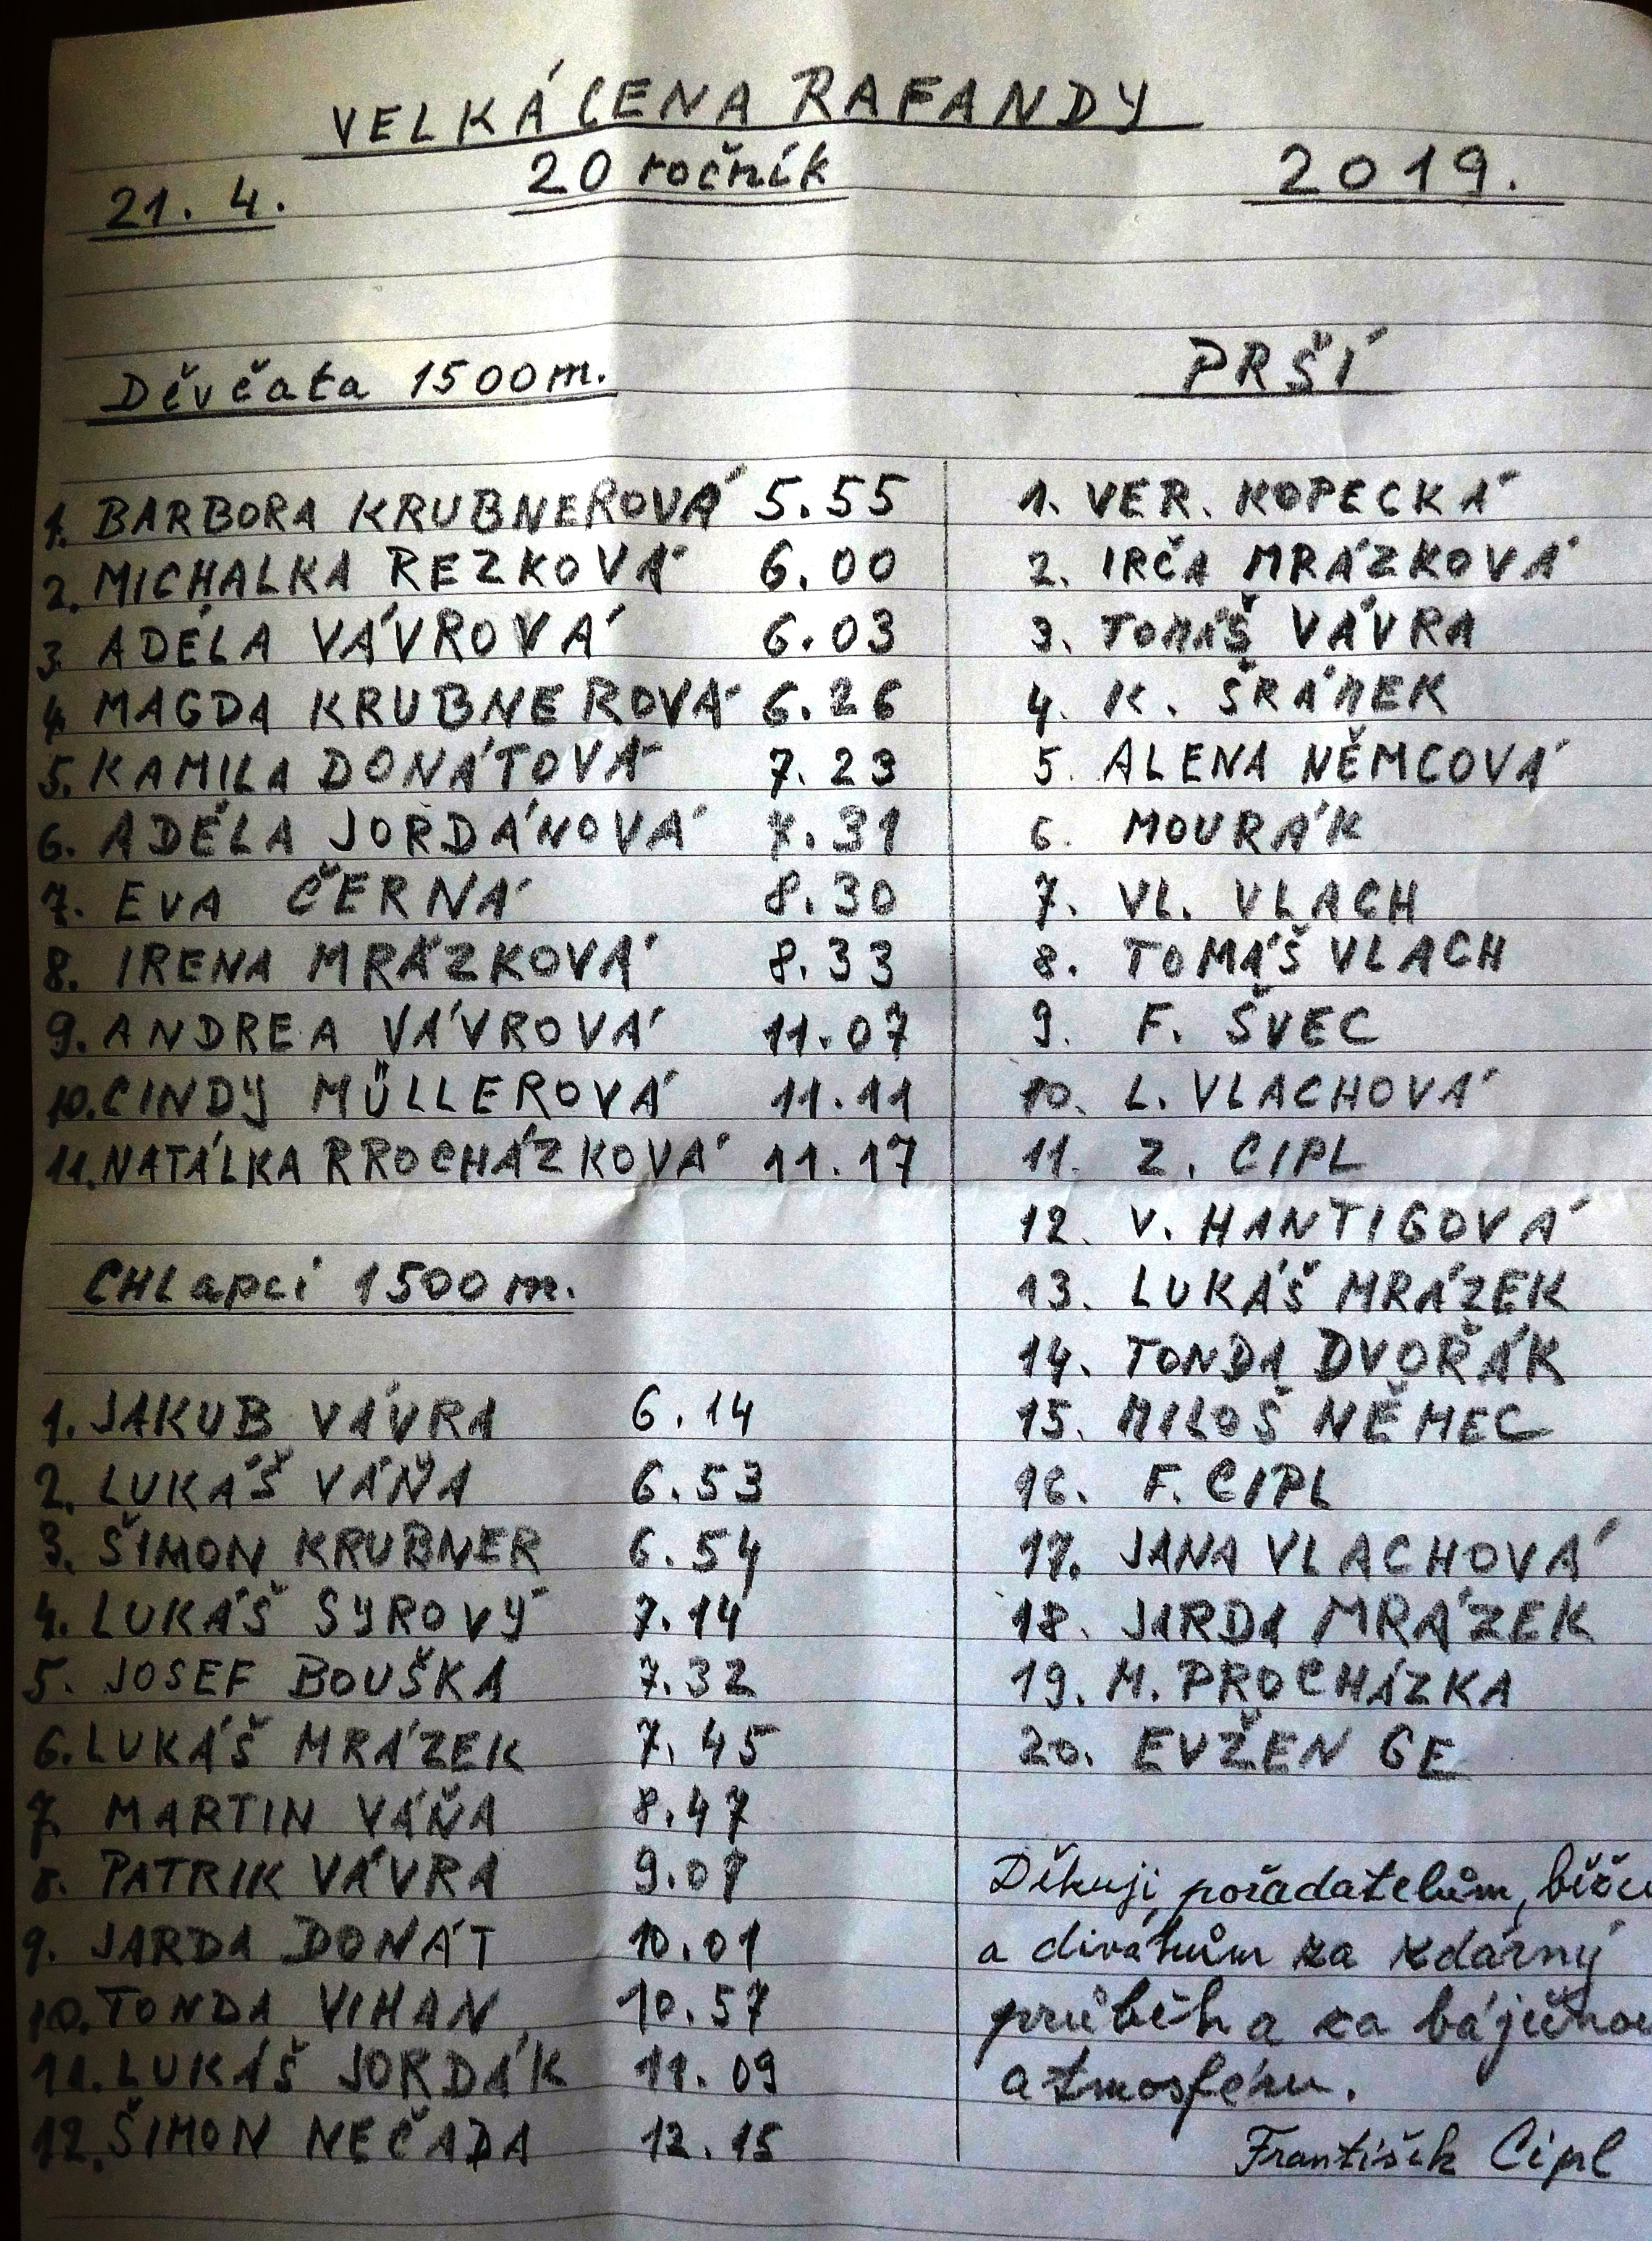 VELKÁ CENA RAFANDY
21. 4. 20 ročník 2019.
Děvčata 1500 m.
1. BARBORA KRUBNEROVÁ 5.55
2. MICHALKA REZKOVÁ 6.00
3. ADÉLA VÁVROVÁ 6.03
4. MAGDA KRUBNEROVÁ 6.26
5. KAMILA DONÁTOVÁ 7.23
6. ADÉLA JORDÁNOVÁ 7.31
7. EVA ČERNÁ 8.30
8. IRENA MRÁZKOVÁ 8.33
9. ANDREA VÁVROVÁ 11.07
10. CINDY MÜLLEROVÁ 11.11
11. NATÁLKA RROCHÁZKOVÁ 11.17
CHLapci 1500 m.
1. JAKUB VÁVRA 6.14
2. LUKÁŠ VÁŇA 6.53
3. ŠIMON KRUBNER 6.54
4. LUKÁŠ SYROVÝ 7.14
5. JOSEF BOUŠKA 7.32
6. LUKÁŠ MRÁZEK 7.45
7. MARTIN VÁŇA 8.47
8. PATRIK VÁVRA
9. JARDA DONÁT 10.01
10. TONDA VIHAN 10.57
11. LUKÁŠ JORDÁK 11.09
12. ŠIMON NEČADA 12.15
PRŠÍ
1. VER. KOPECKÁ
2. IRČA MRÁZKOVÁ
3. TOMÁŠ VÁVRA
4. K. ŠRÁMEK
5. ALENA NĚMCOVÁ
6. MOURÁK
7. VL. VLACH
8. TOMÁŠ VLACH
9. F. ŠVEC
10. L. VLACHOVÁ
11. Z. CIPL
12. V. HANTIGOVÁ
13. LUKÁŠ MRÁZEK
14. TONDA DVOŘÁK
15. MILOŠ NĚMEC
16. F. CIPL
17. JANA VLACHOVÁ
18. JARDA MRÁZEK
19. M. PROCHÁZKA
20. EVŽEN GE
Děkuji, pořadatelům,
a divákům za zdárný
průběh a za báječnou
atmosféru.
František Cipl